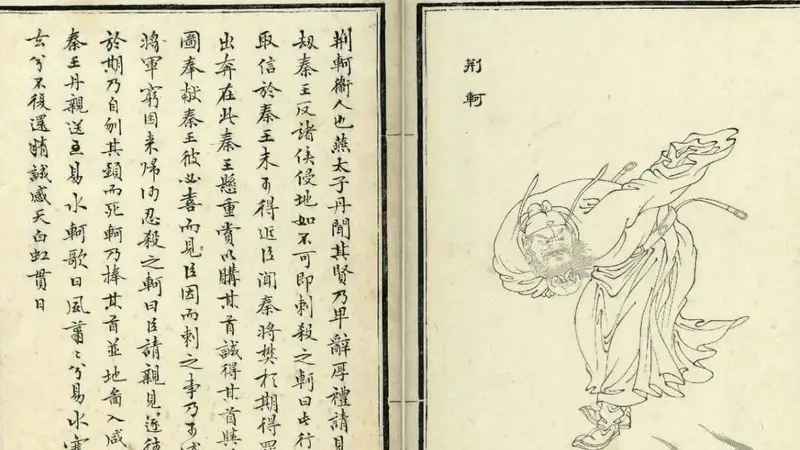 荊軻
荊軻衞人也燕太子丹聞其賢乃卑辭厚禮請見
刼秦王反諸侯侵地如不可即刺殺之軻曰此行
取信於秦王未可得近臣聞秦將樊於期得罪
出奔在此秦王懸重賞以購其首誠得其首與
圖奉獻秦王彼必喜而見臣因而刺之事乃可
將軍窮困来歸何忍殺之軻曰臣請親見遂
於期乃自刎其頸而死軻乃捧其首並地圖入咸
秦王丹親送至易水軻歌曰風蕭〻兮易水寒
去兮不復還精誠感天白虹貫日